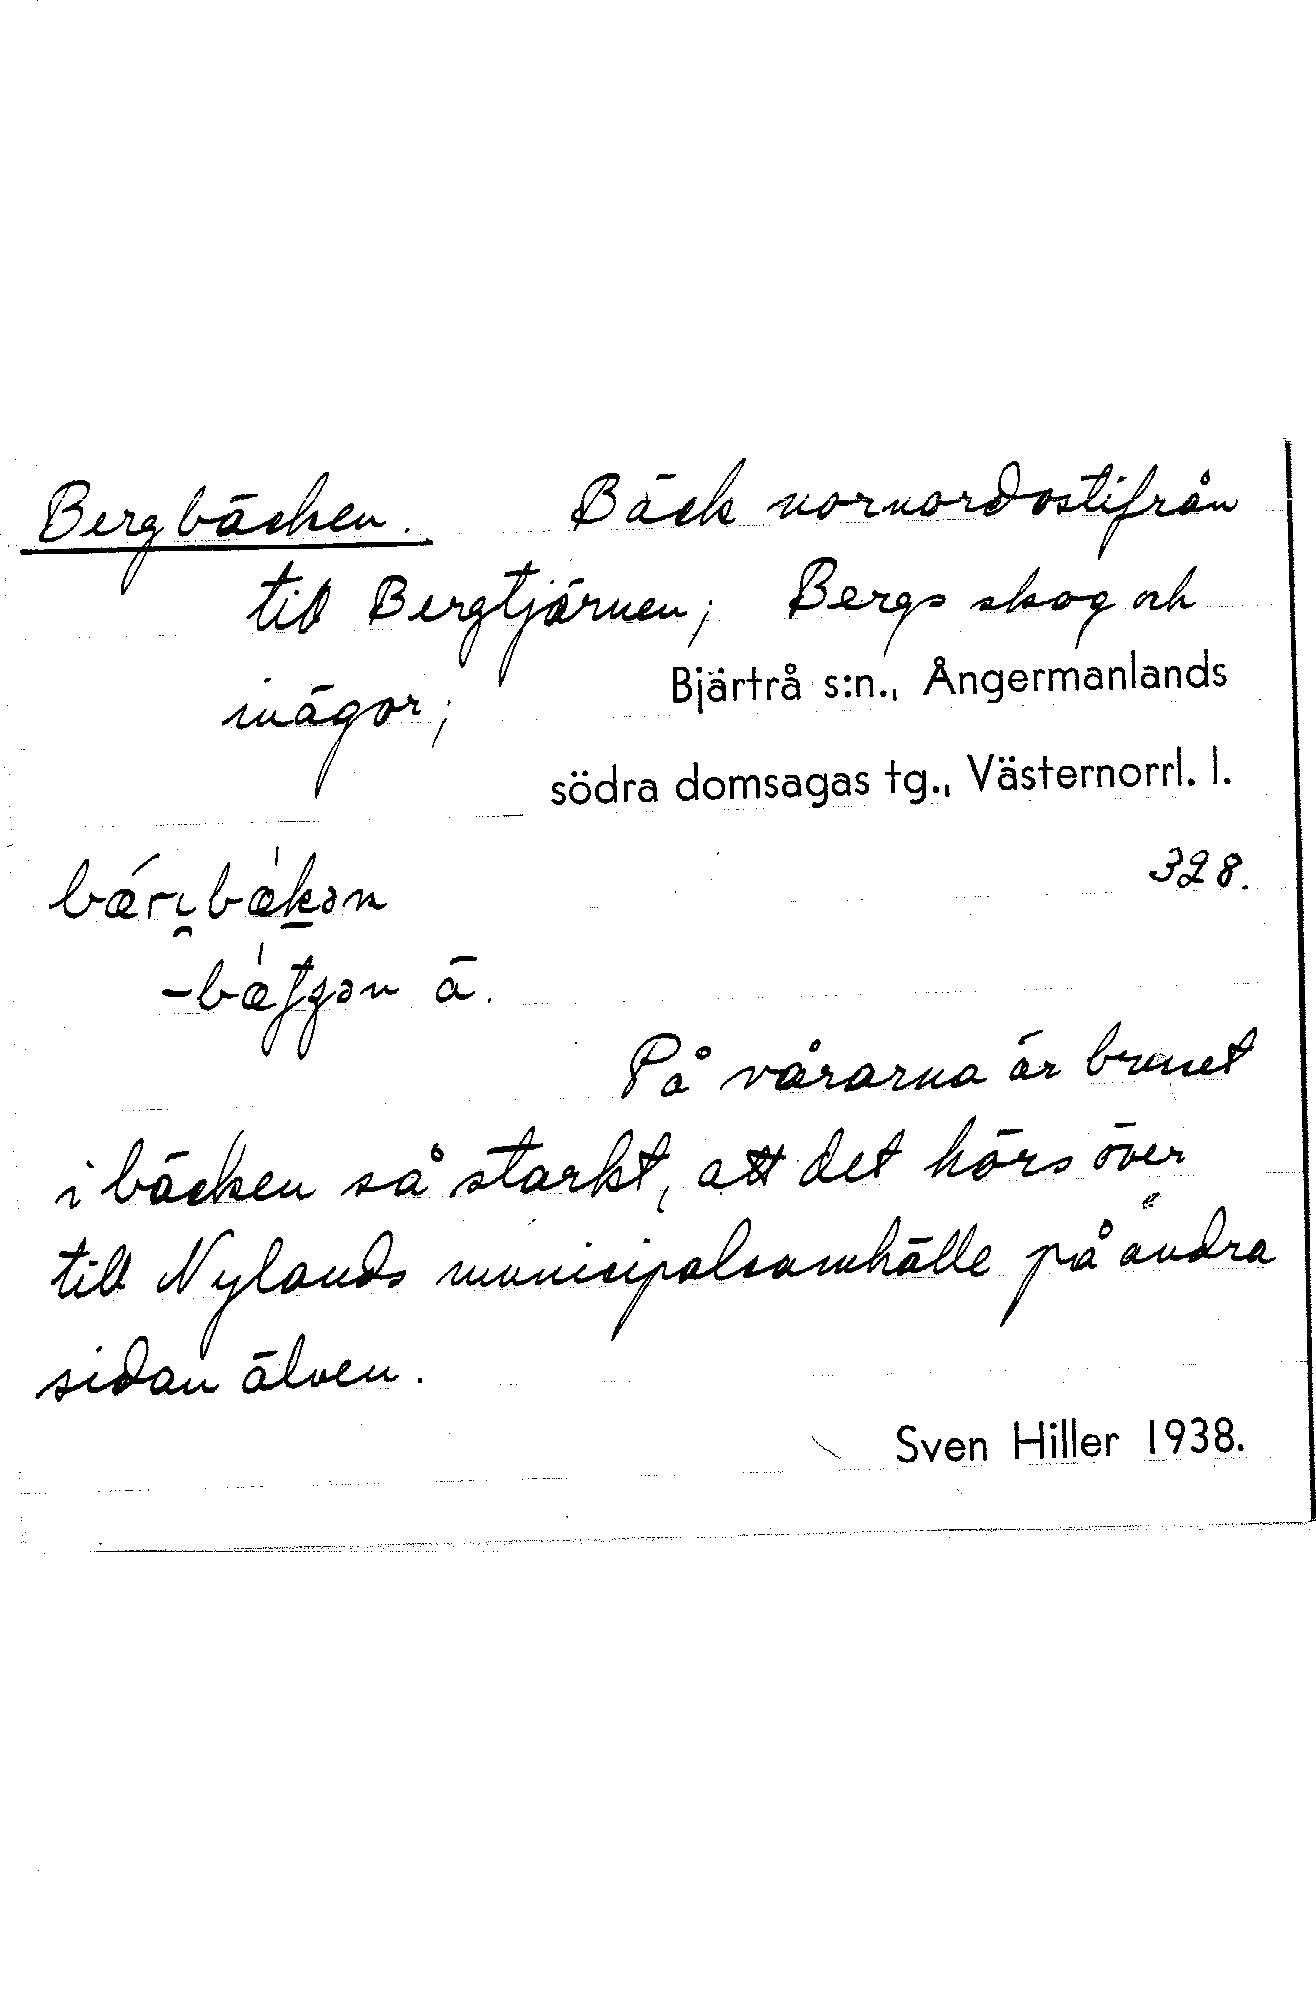 Bergbäcken. Bäck nornordostifrån
till Bergtjärnen; Bergs skog och
inägor; Bjärtrå s:n., Ångermanlands
södra domsagas tg., Västernorrl. l.
328.
ä.
På vårarna är bruset
i bäcken så starkt, att det hörs över
till Nylands municipalsamhälle på andra
sidan älven.
Sven Hiller 1938.